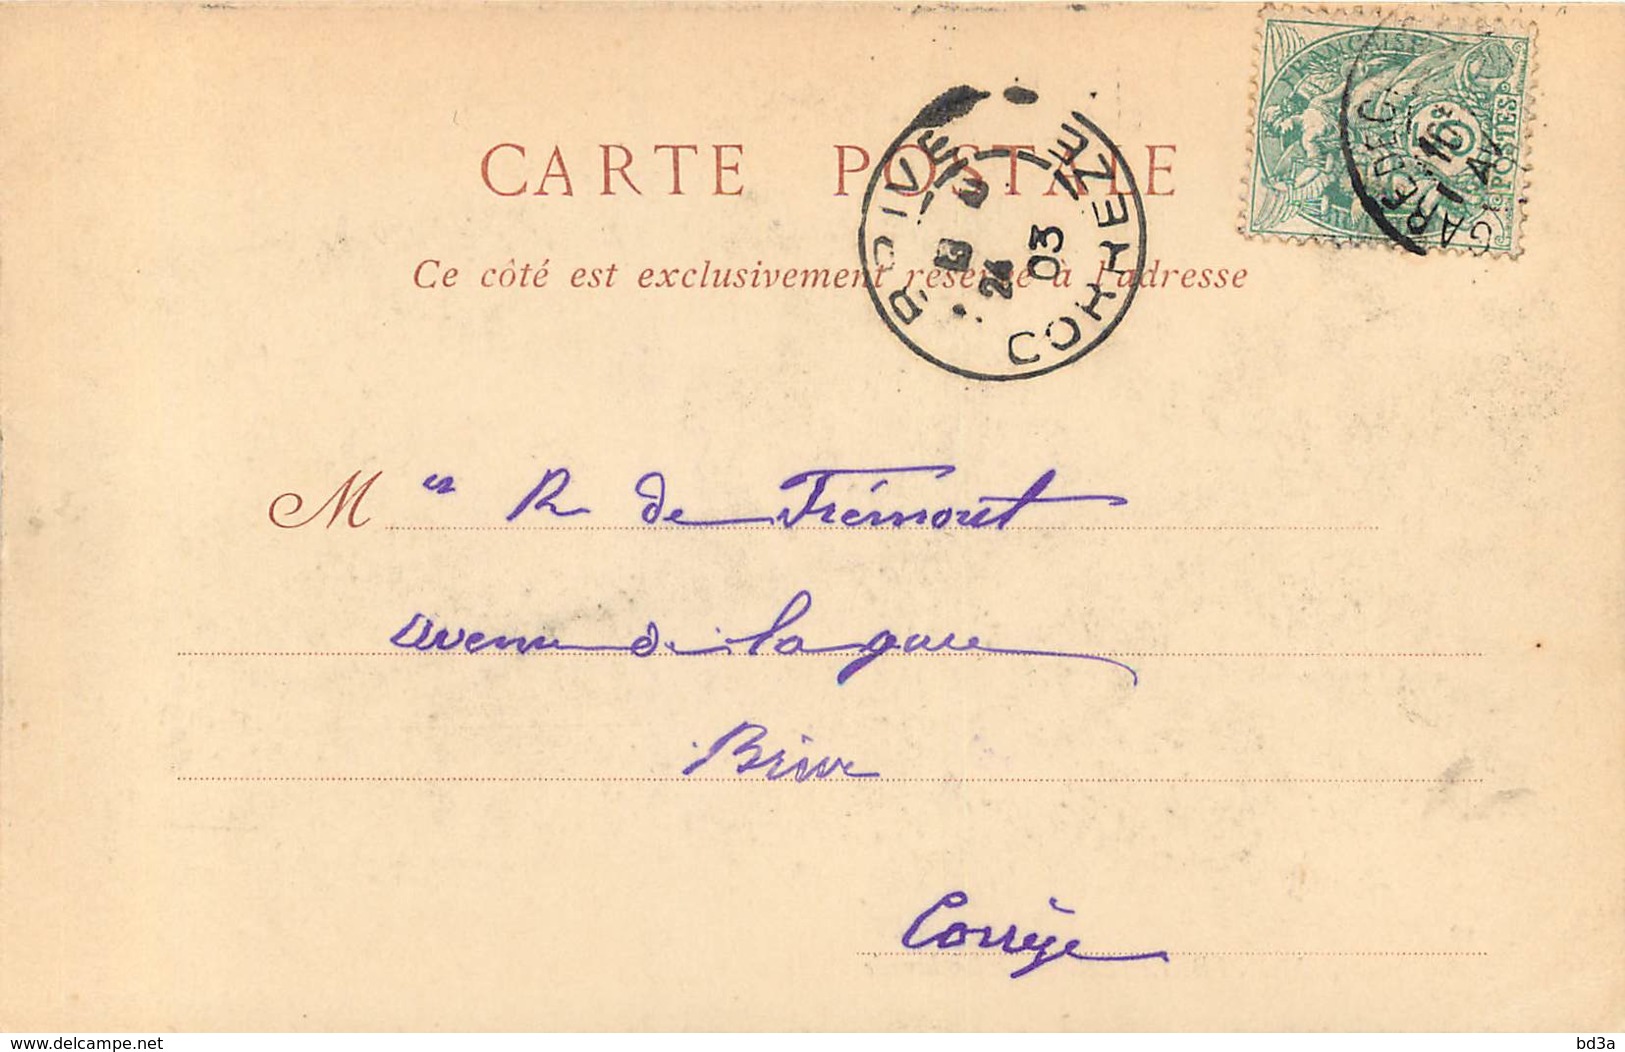 CARTE POSTALE
Ce côté est exclusivement réservé à l'adresse
FRANÇAISE
5
POSTES
16
AV
BRIVE
24
03
CORREZE
M es R de Frémont
Avenue de la gare
Brive
Corrèze
www.delcampe.net
bd3a